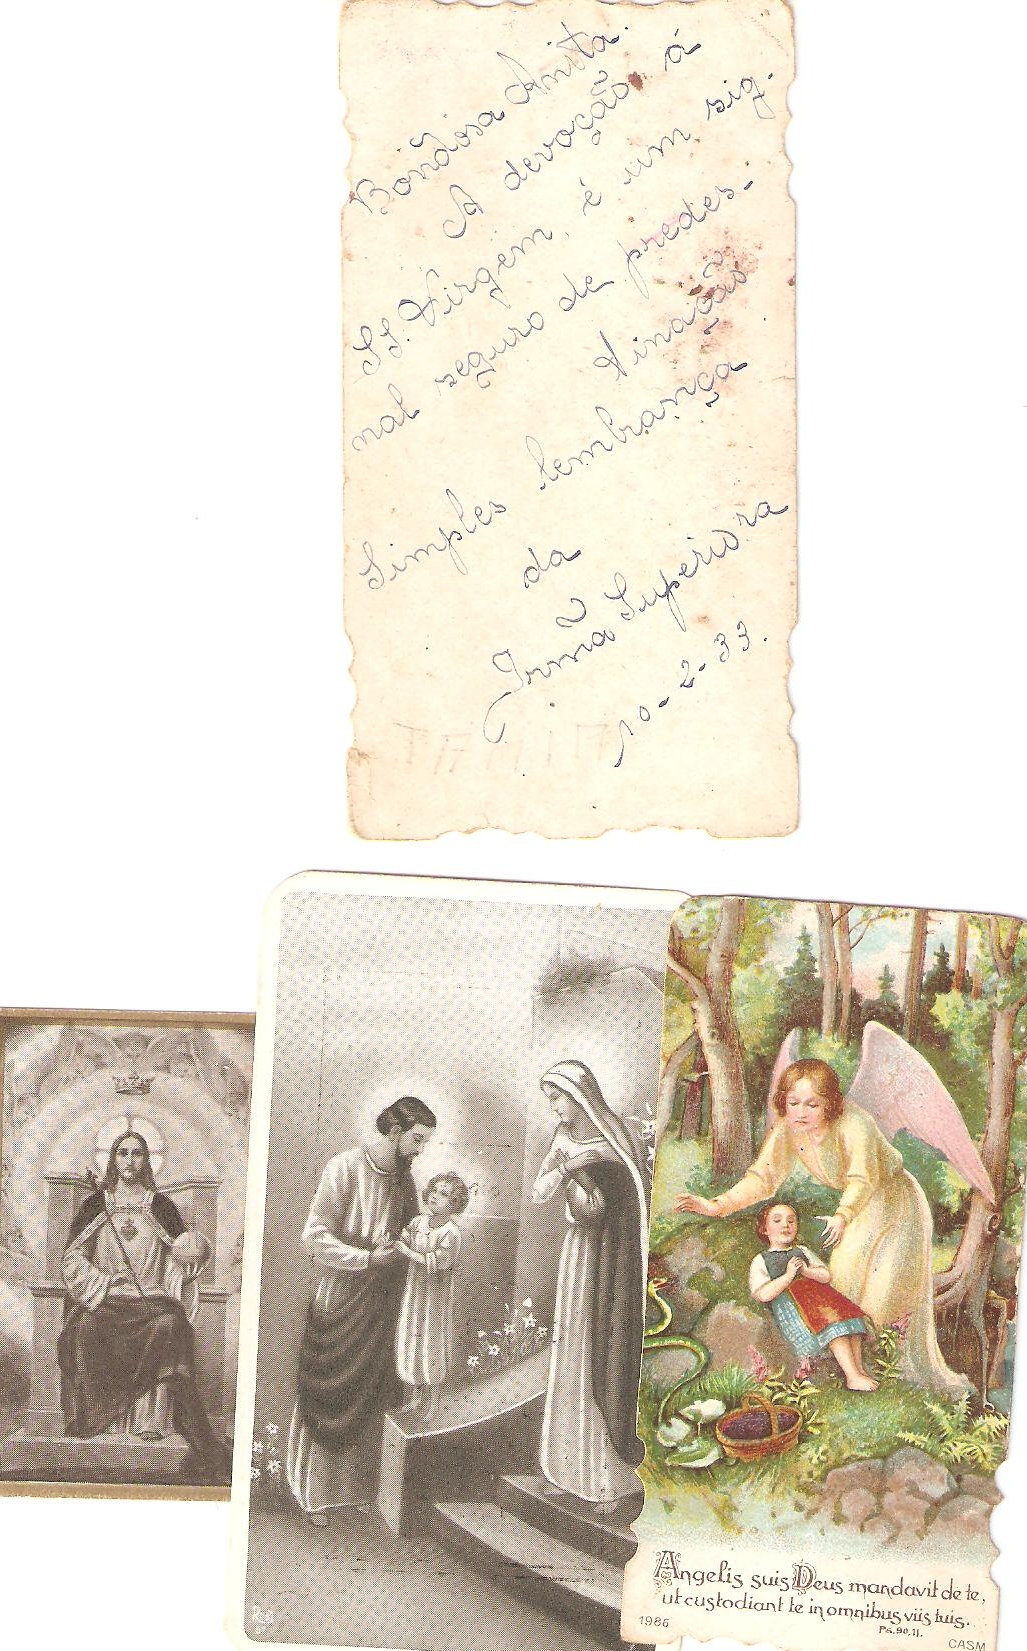 Bondosa Anita.
A devoção á
SS. Virgem, é um sig-
nal seguro de predes-
tinação
Simples lembrança
da
Irmã Superiora
10-2-33.
Angelis suis Deus mandavit de te,
ut custodiant te in omnibus viis tuis.
Ps. 90, 11.
1986
CASM